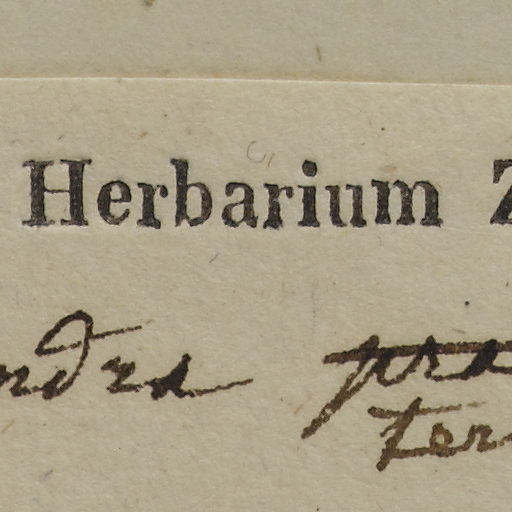 Herbarium Z
ndra pra
ter